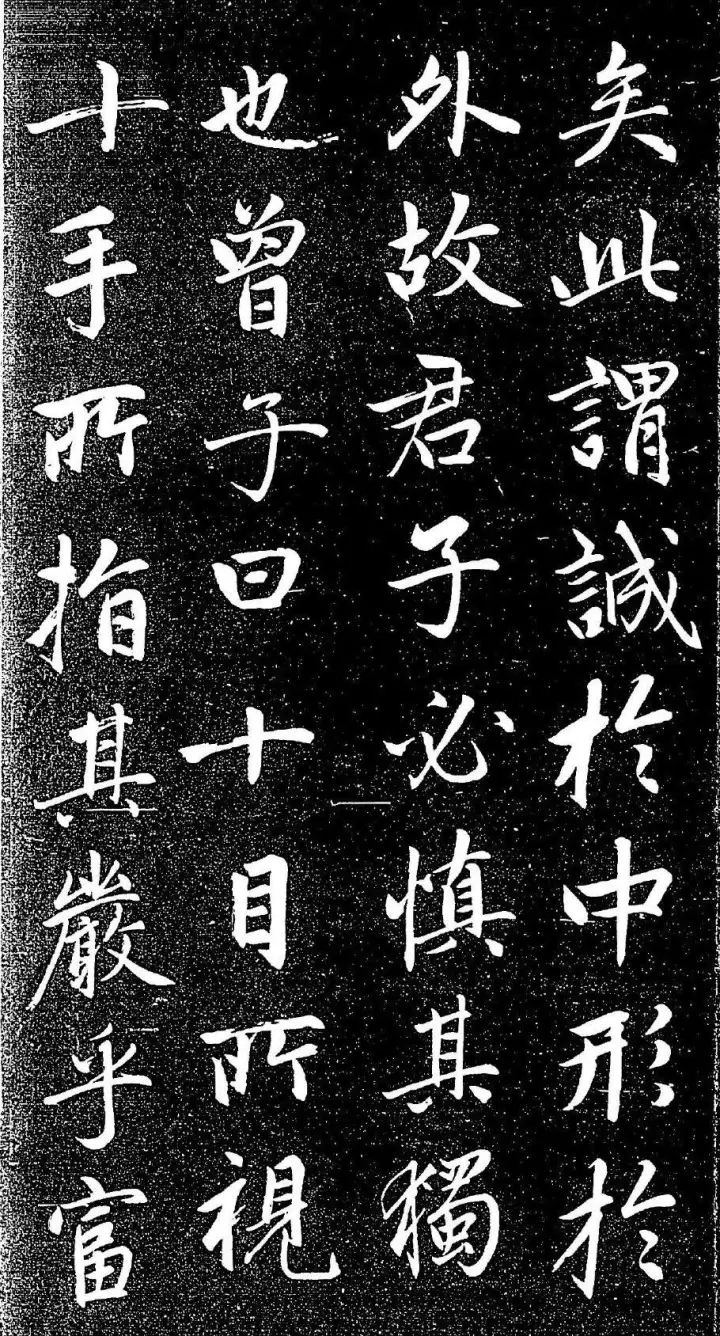 矣此謂誠於中形於
外故君子必慎其獨
也曾子曰十目所視
十手所指其嚴乎富